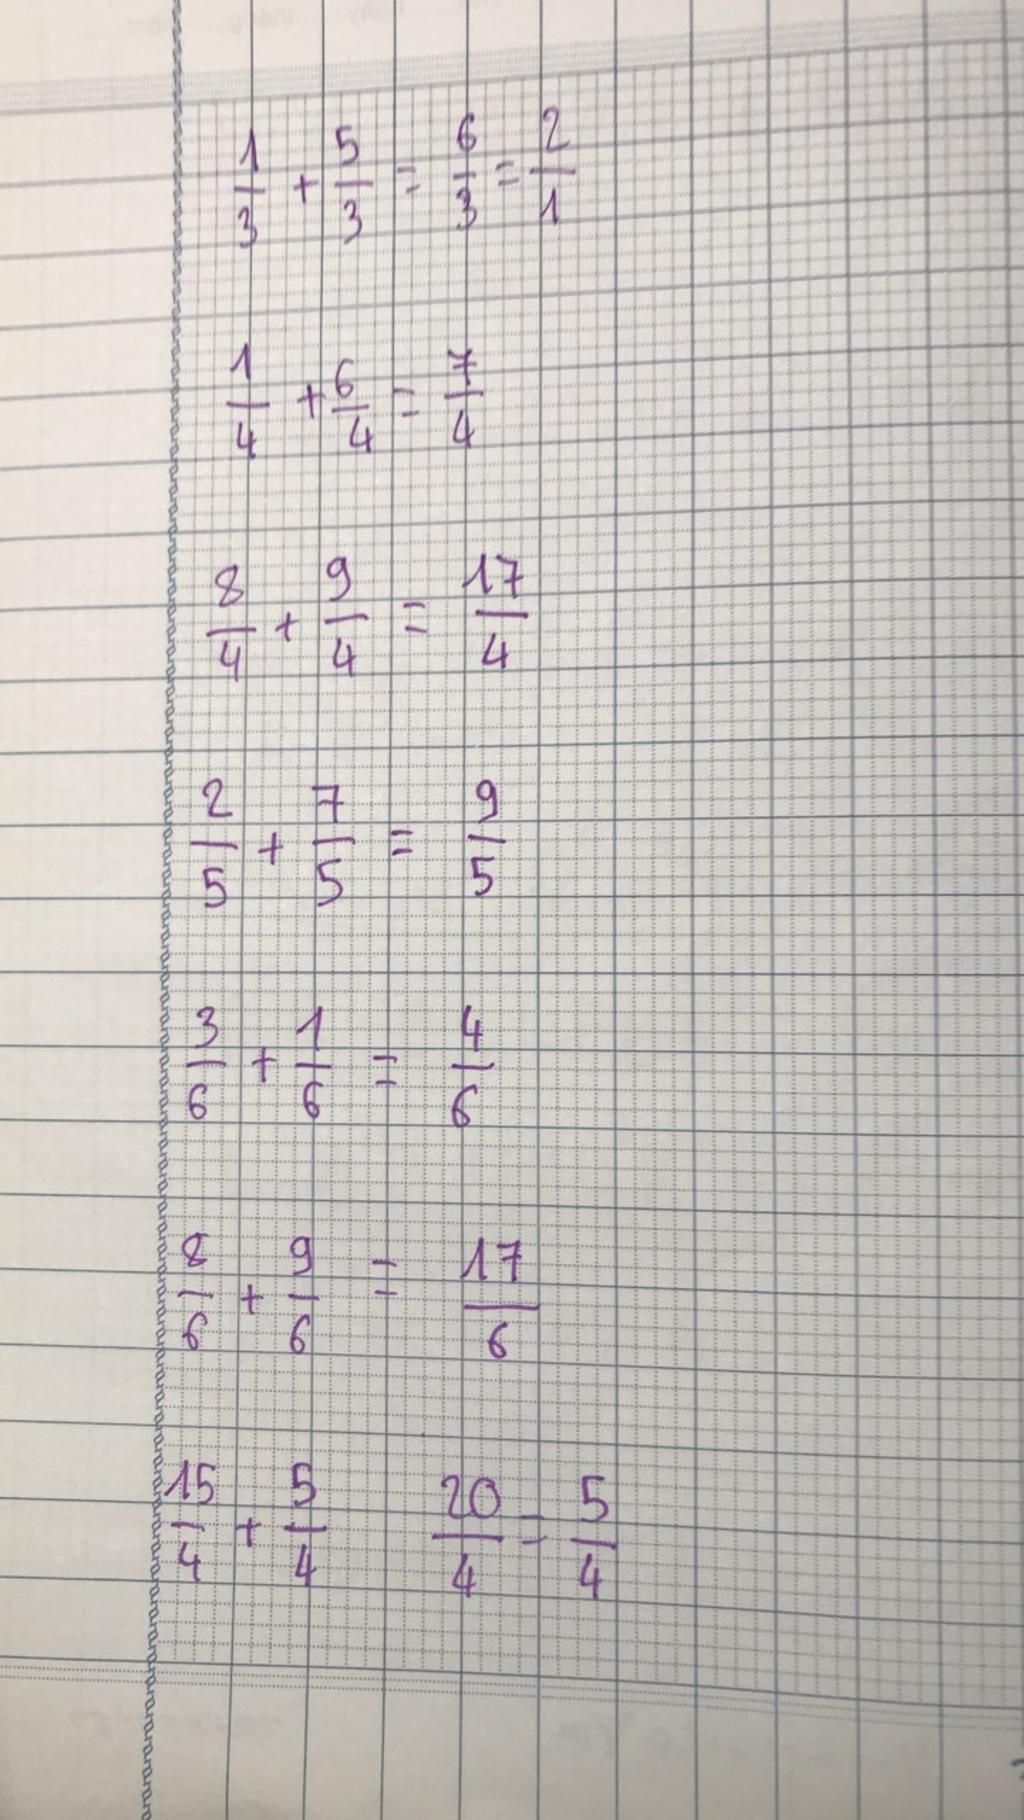 1/3 + 5/3 = 6/3 = 2/1
1/4 + 6/4 = 7/4
8/4 + 9/4 = 17/4
2/5 + 7/5 = 9/5
3/6 + 1/6 = 4/6
8/6 + 9/6 = 17/6
15/4 + 5/4 20/4 = 5/4